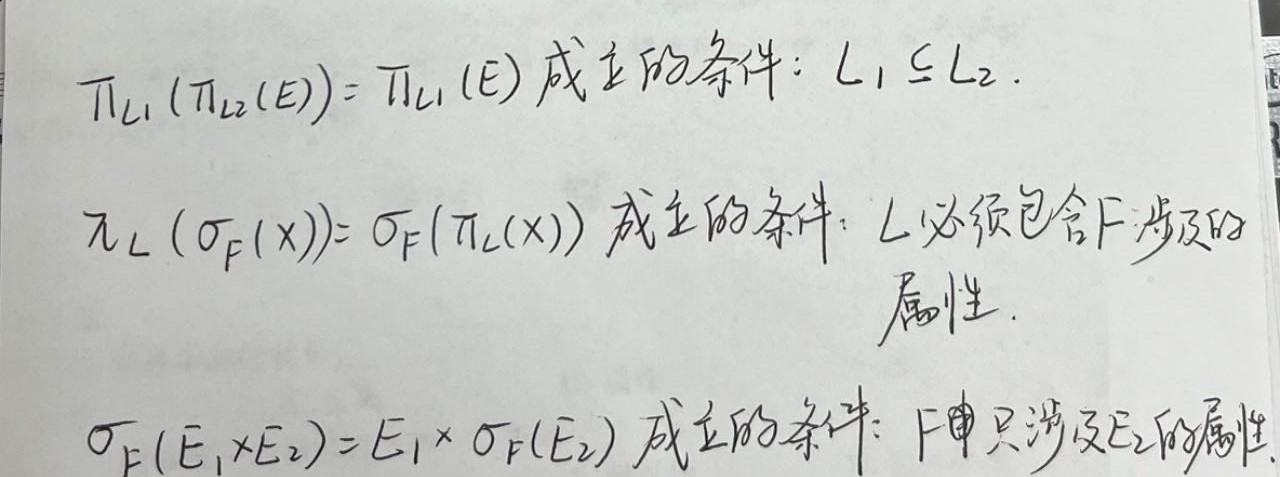 π_{L1}(π_{L2}(E))=π_{L1}(E) 成立的条件: L₁⊆L₂.
π_L(σ_F(X))=σ_F(π_L(X)) 成立的条件: L必须包含F涉及的
属性.
σ_F(E₁×E₂)=E₁×σ_F(E₂) 成立的条件: F只涉及E₂的属性.